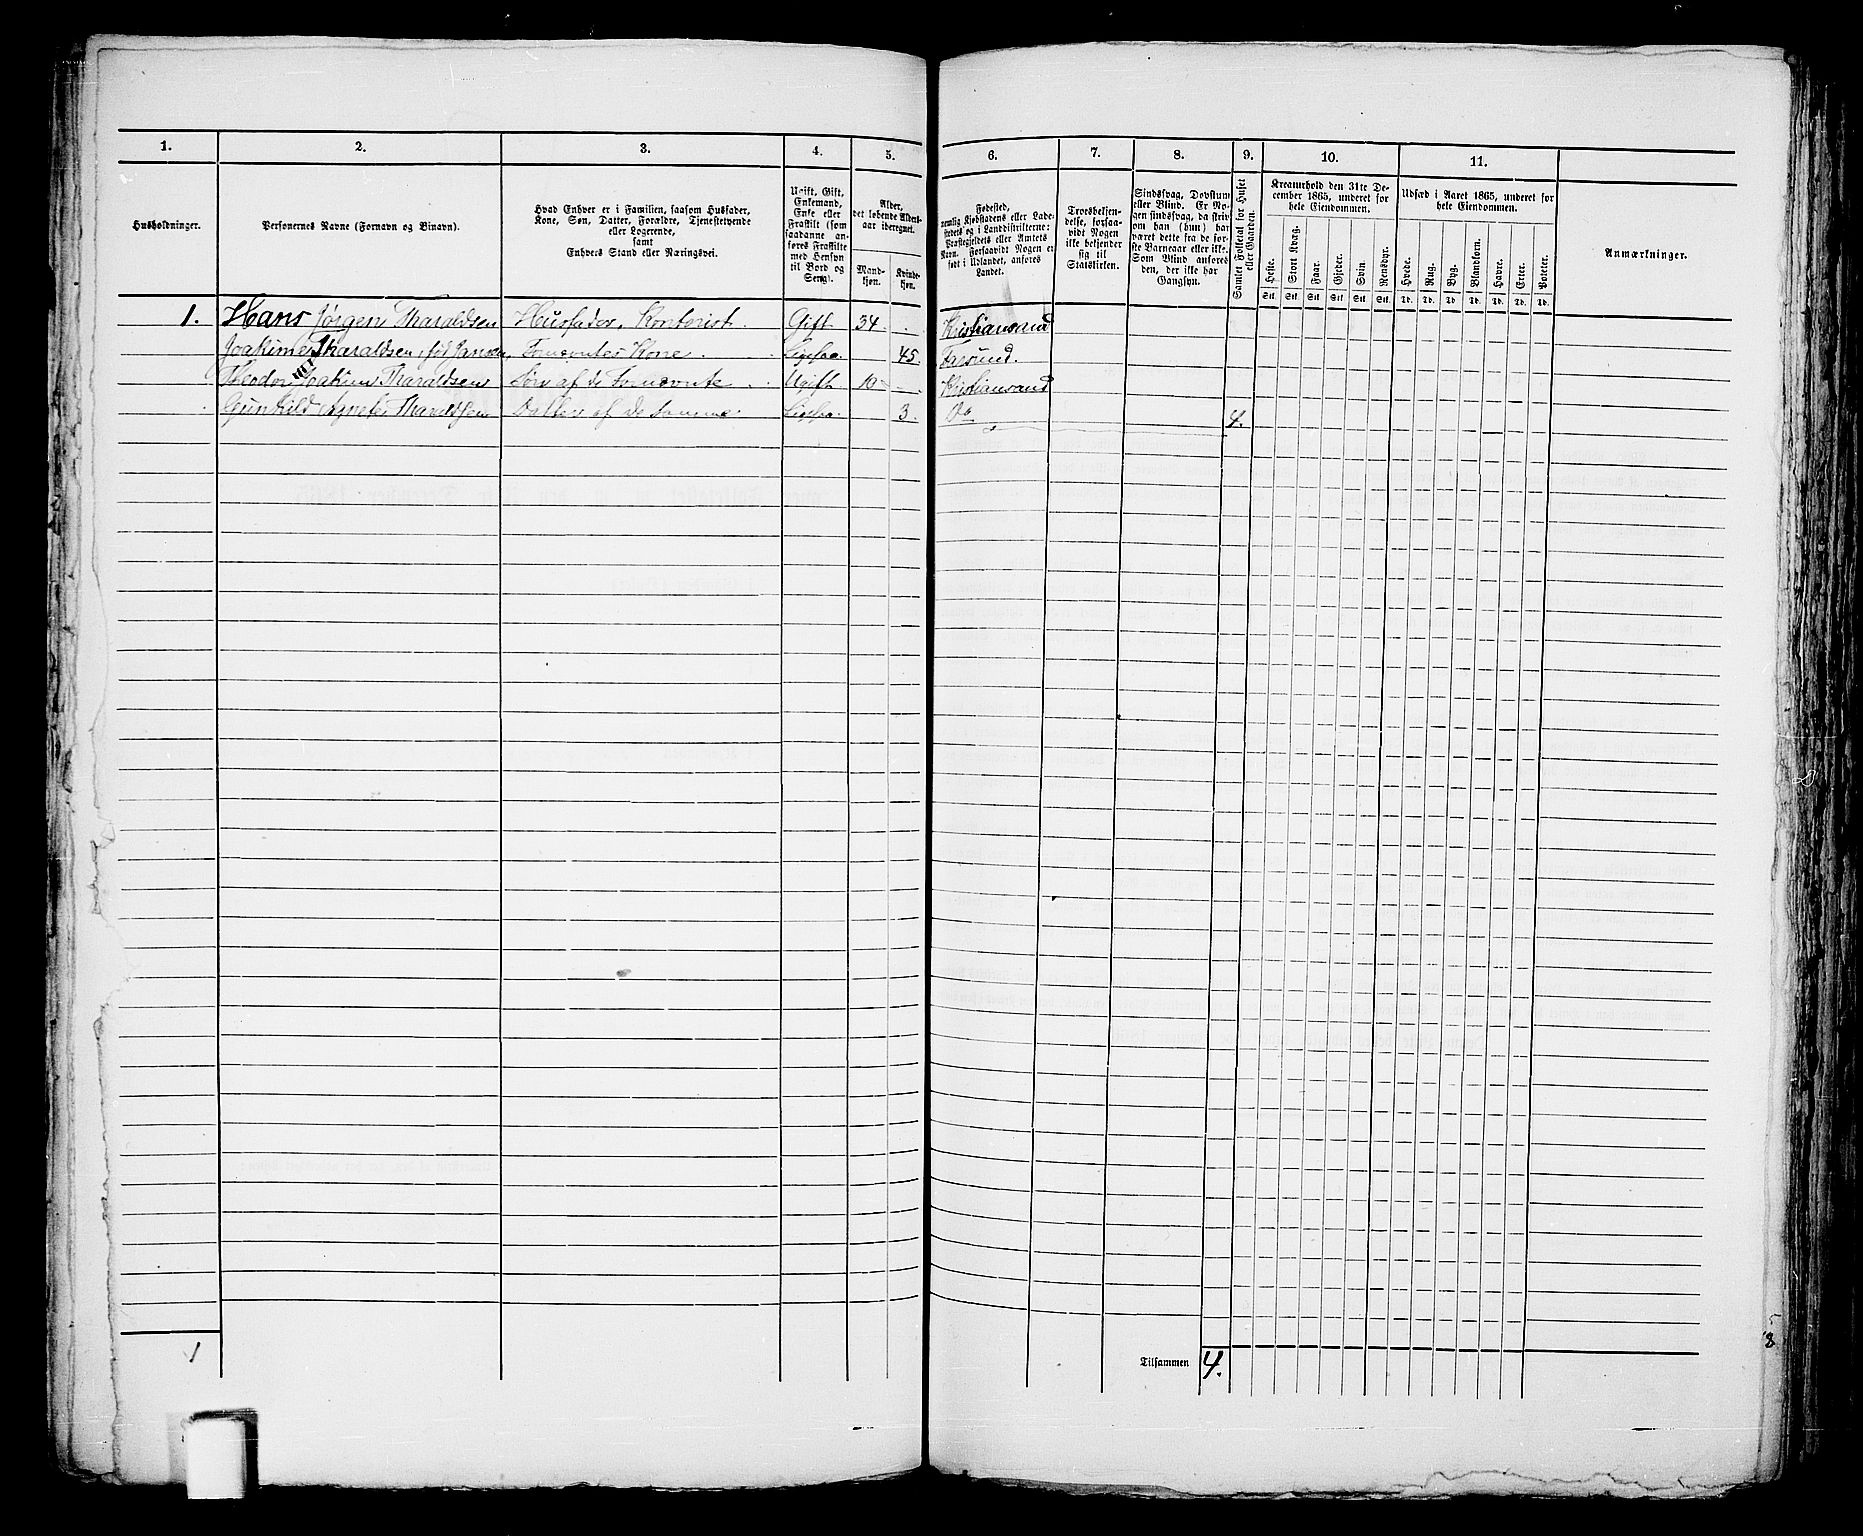 1. 2. 3. 4. 5. 6. 7. 8. 9. 10. 11.
Husholdninger.
Personernes Navne (Fornavn og Binavn).
Hvad Enhver er i Familien, saasom Husfader,
Kone, Søn, Datter, Forældre, Tjenestetyende
eller Logerende,
samt
Enhvers Stand eller Næringsvei.
Ugift, Gift,
Enkemand,
Enke eller
Fraskilt (som
saadanne an-
føres Fraskilte
med Hensyn
til Bord og
Seng).
Alder,
det løbende Alders-
aar iberegnet.
Mand-
kjøn.
Kvinde-
kjøn.
Fødested,
nemlig Kjøbstadens eller Lade-
stedets og i Landdistrikterne:
Præstegjeldets eller Amtets
Navn. Forsaavidt Nogen er
født i Udlandet, anføres
Landet.
Troesbekjen-
delse, forsaa-
vidt Nogen
ikke bekjender
sig til
Statskirken.
Sindssvag, Døvstum
eller Blind. Er No-
gen sindssvag, da skriv
om han (hun) har
været dette fra de før-
ste Barneaar eller ikke.
Som Blind anføres
den, der ikke har
Gangsyn.
Samlet Folketal for Huset
eller Gaarden.
Kreaturhold den 31te De-
cember 1865, underet for
hele Eiendommen.
Heste. Stort Kvæg. Faar. Gjeder. Svin. Rensdyr.
Stk. Stk. Stk. Stk. Stk. Stk.
Udsæd i Aaret 1865, underet for
hele Eiendommen.
Hvede. Rug. Byg. Blandkorn. Havre. Erter. Poteter.
Td. Td. Td. Td. Td. Td. Td.
Anmærkninger.
1. Hans Jørgen Tharaldsen Husfader, Kontorist. Gift 34. Kristiansand
Joakime Tharaldsen, fød Jansen, Fornævntes Kone. Ligesaa. 45. Farsund.
Theodor Joakim Tharaldsen Søn af de Fornævnte Ugift 10 Kristiansand
Gunhild Agnete Tharaldsen Datter af de samme. Ligesaa. 3. Do 4.
1
Tilsammen 4.